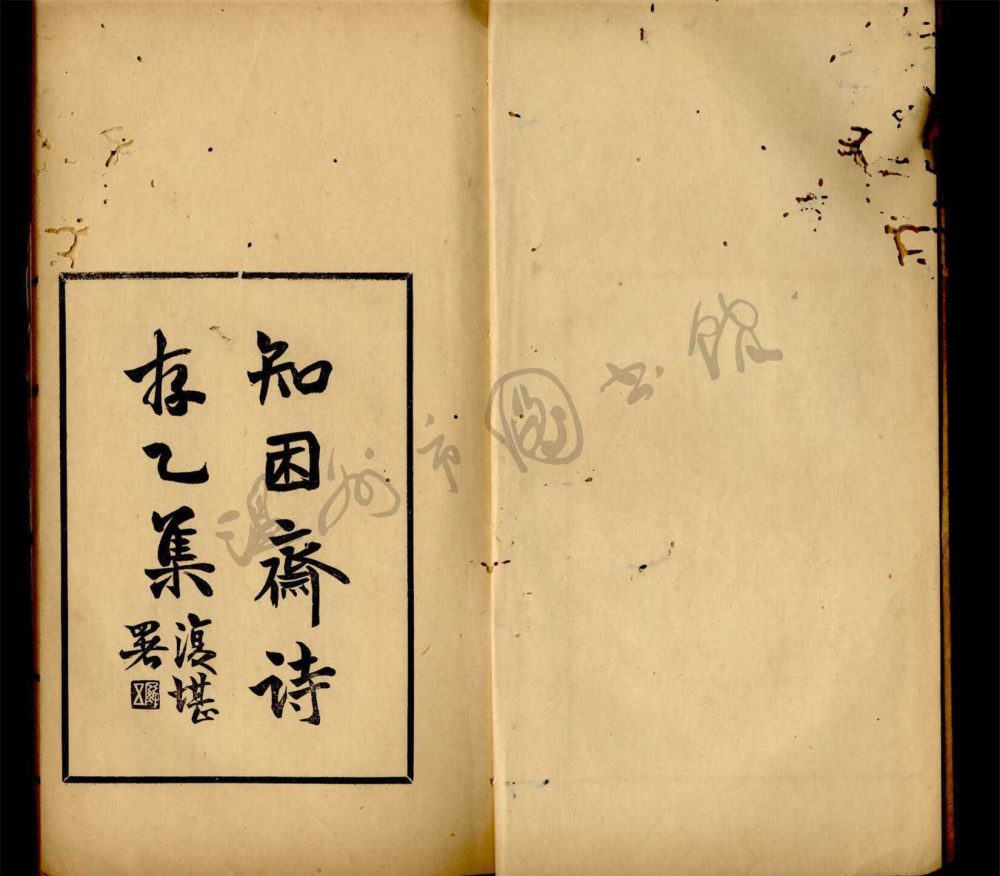 知困齋詩
存乙集
復堪
署
温州市圖书館